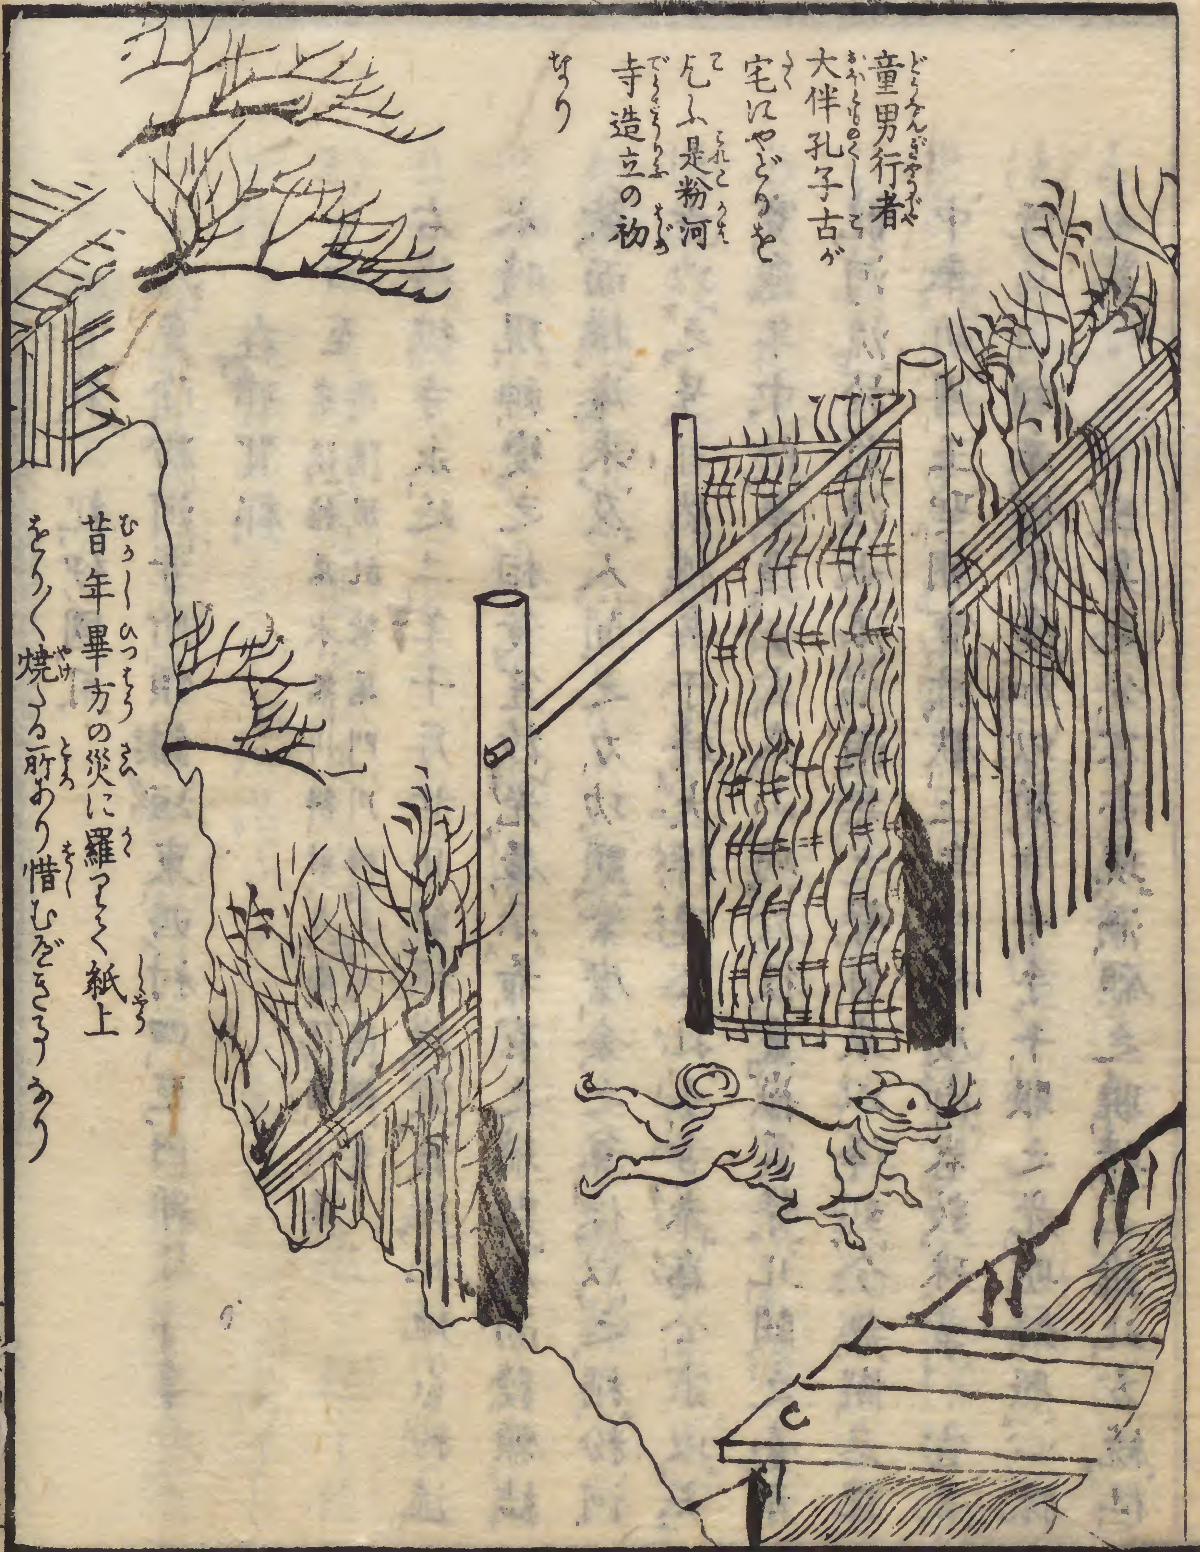 童男行者
大伴孔子古が
宅にやどりを
乞ふ是粉河
寺造立の初
なり
昔年畢方の災に羅りて紙上
をり〱焼たる所あり惜むべき事なり